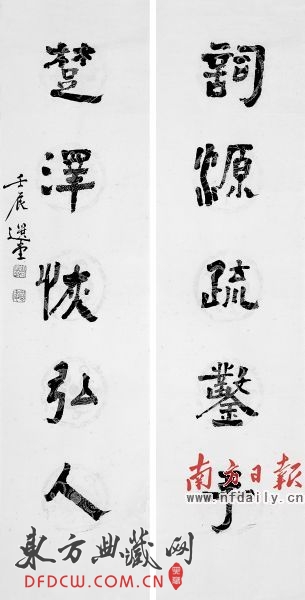 詞源疏鑿手
楚澤恢弘人
壬辰 選堂
南方日报
www.nfdaily.cn
東方典藏网
DFDCW.COM.CN